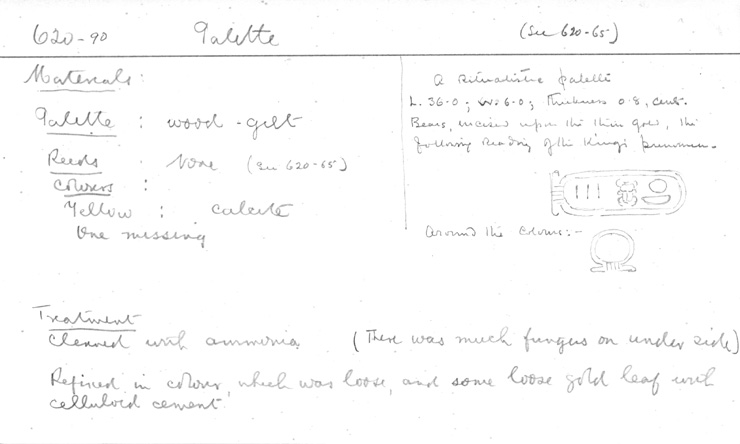 620-90 Palette (See 620-65)
Materials:
Palette : wood-gilt
Reeds : None (See 620-65)
Colours :
Yellow : calcite
One missing
A ritualistic palette
L. 36·0 ; W. 6·0 ; Thickness 0·8, cent.
Bears, incised upon the thin gold, the
following reading of the King's prenomen.
Around the colours:-
Treatment
Cleaned with ammonia (There was much fungus on under side)
Refixed in colour, which was loose, and some loose gold leaf with
celluloid cement.